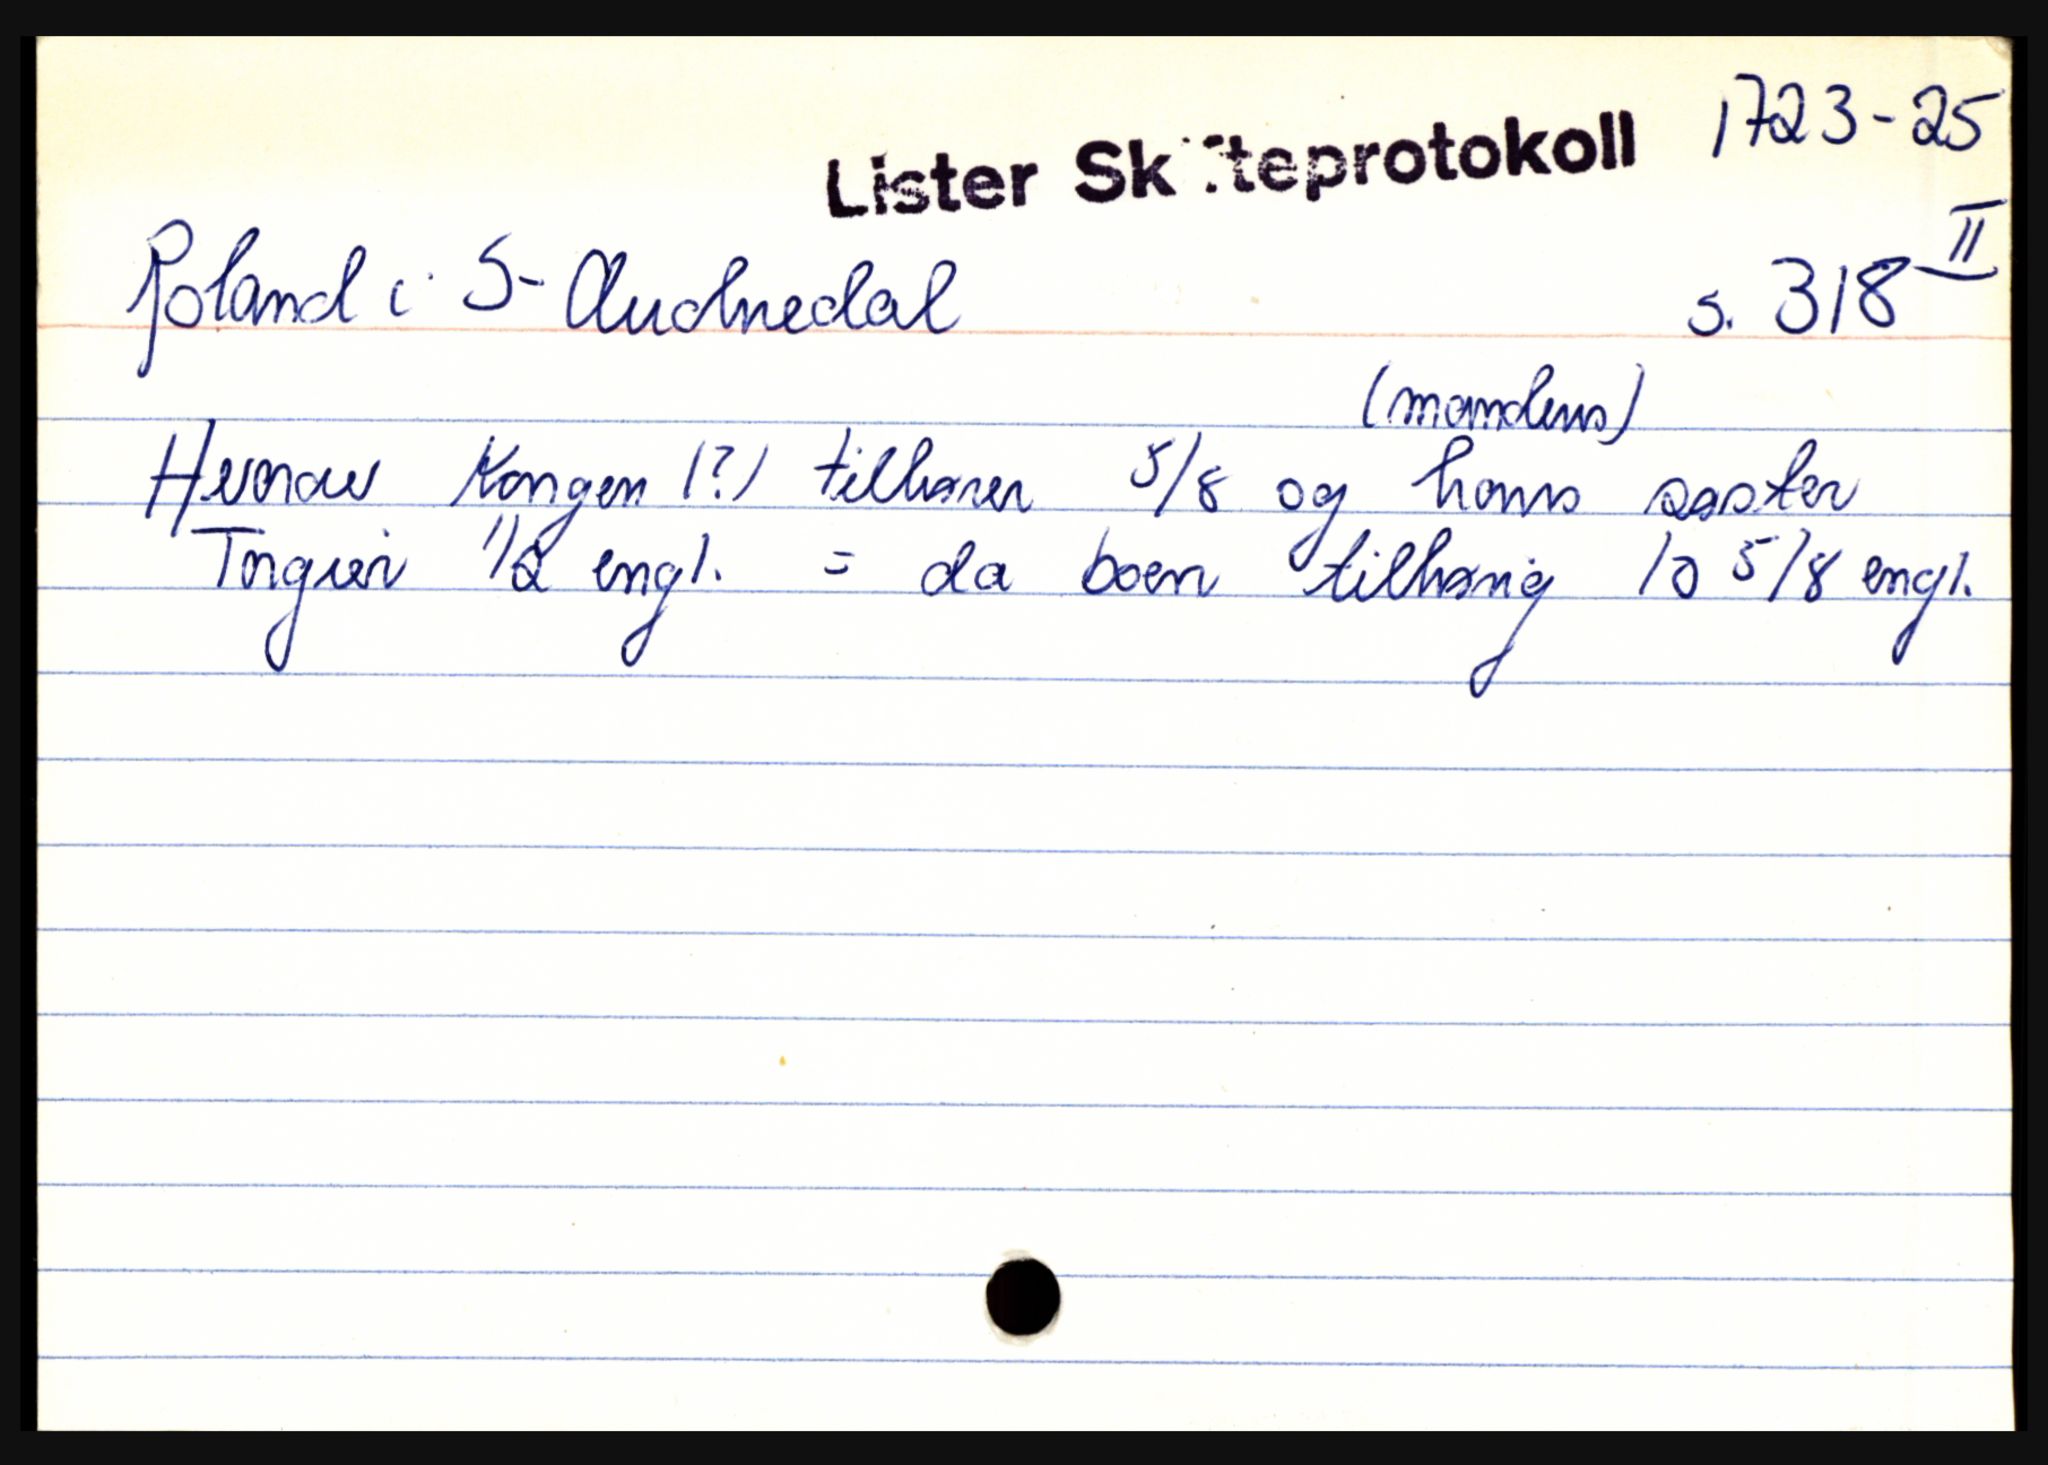 1723-25
Lister Skifteprotokoll
Roland i S-Audnedal s. 318 II
(mandens)
Hvorav Kongen (?) tilhører 5/8 og hans søster
Torgier 1/2 engl. = da boen tilhørig 10 5/8 engl.